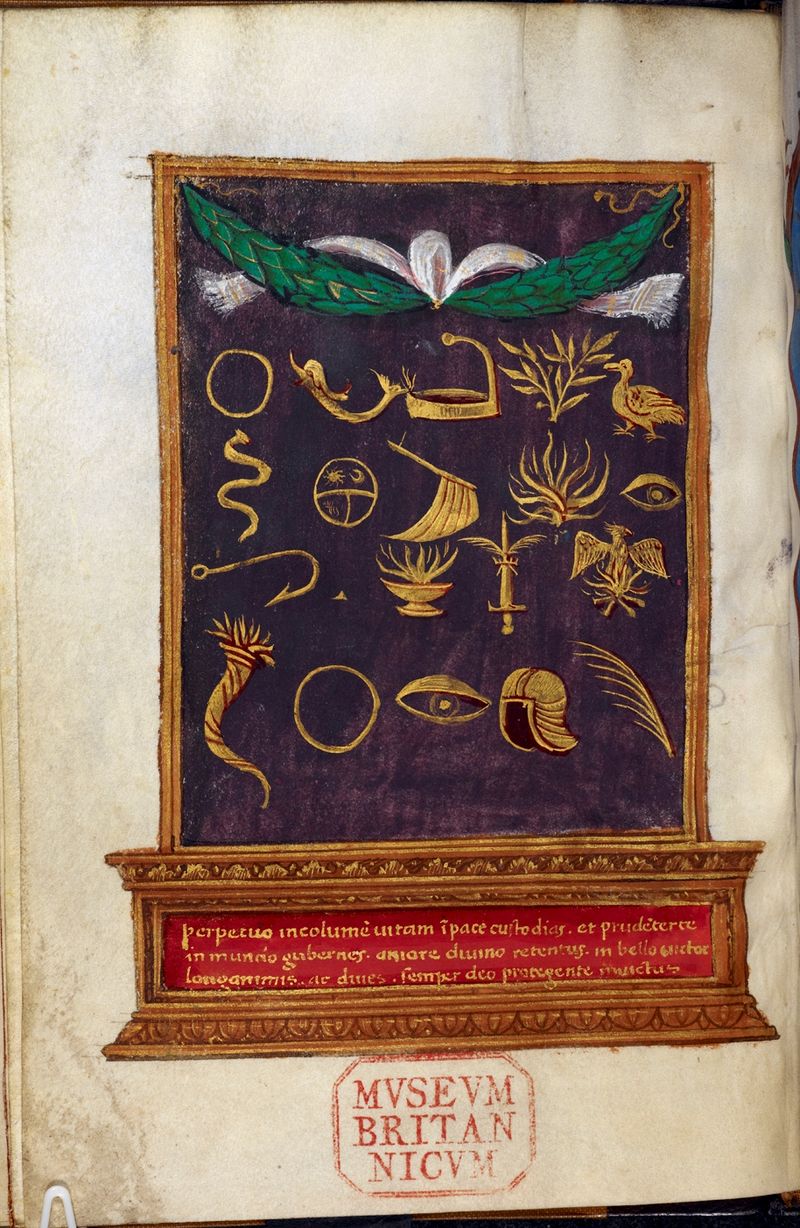 perpetuo incolumē uitam ī pace custodias . et prudēterte
in mundo gubernes . amore diuino retentus . in bello uictor
longanimis . ac diues . semper deo protegente inuictus
MVSEVM
BRITAN
NICVM